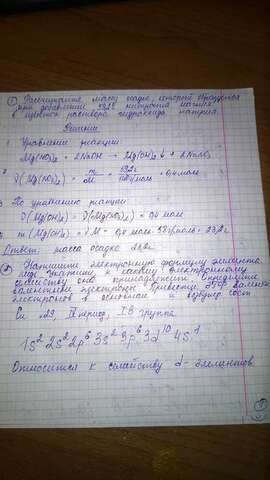 ① Рассчитайте массу осадка, который образуется
при добавлении 59,2 г нитрата магния
раствора гидроксида натрия.
Решение
1. Уравнение реакции
Mg(NO₃)₂ + 2NaOH → Mg(OH)₂↓ + 2NaNO₃
2. ν(Mg(NO₃)₂) = m/M = 59,2 г / 148 г/моль = 0,4 моль
3. По уравнению реакции
ν(Mg(OH)₂) = ν(Mg(NO₃)₂) = 0,4 моль
m(Mg(OH)₂) = ν·M = 0,4 моль · 58 г/моль = 23,2 г
Ответ: масса осадка 23,2 г
② Напишите электронную формулу элемента
меди укажите к какому электронному
семейству она принадлежит. Определите
валентные электроны. Приведите
электронов в основном и возбужд сост
Cu +29 IV период, I B группа
1s² 2s² 2p⁶ 3s² 3p⁶ 3d¹⁰ 4s¹
Относится к семейству d-элементов